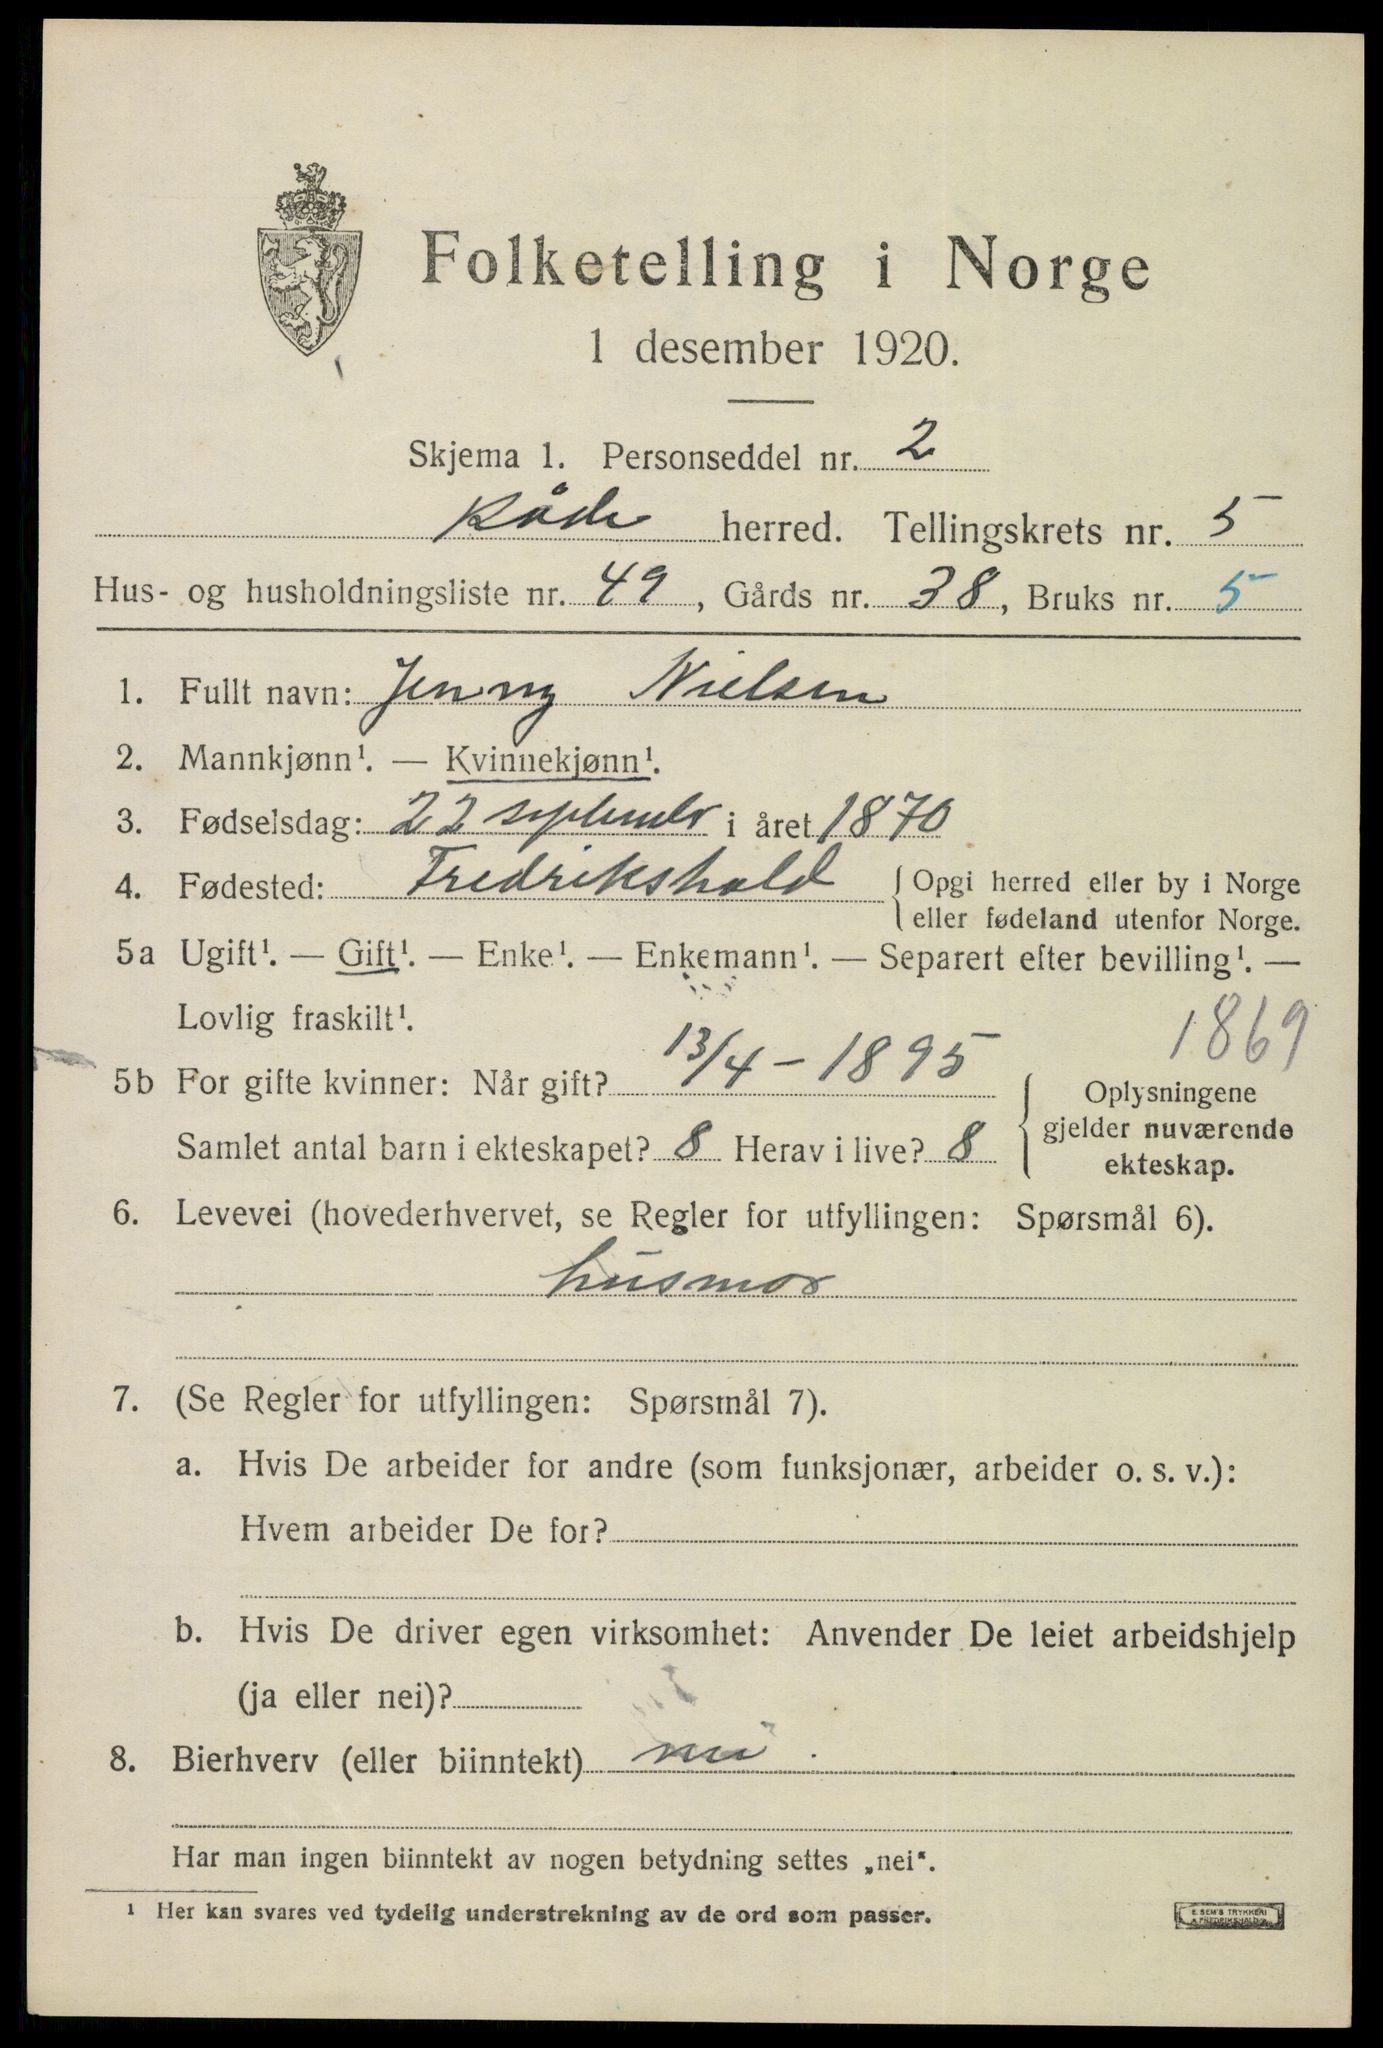 Folketelling i Norge
1 desember 1920.
Skjema 1. Personseddel nr. 2
Råde herred. Tellingskrets nr. 5
Hus- og husholdningsliste nr. 49, Gårds nr. 38, Bruks nr. 5
1. Fullt navn: Jenny Nielsen
2. Mannkjønn¹. — Kvinnekjønn¹.
3. Fødselsdag: 22 september i året 1870
4. Fødested: Fredrikshald { Opgi herred eller by i Norge
eller fødeland utenfor Norge.
5a Ugift¹. — Gift¹. — Enke¹. — Enkemann¹. — Separert efter bevilling¹. —
Lovlig fraskilt¹.
1869
5b For gifte kvinner: Når gift? 13/4 - 1895
Samlet antal barn i ekteskapet? 8 Herav i live? 8
Oplysningene
gjelder nuværende
ekteskap.
6. Levevei (hovederhvervet, se Regler for utfyllingen: Spørsmål 6).
husmor
7. (Se Regler for utfyllingen: Spørsmål 7).
a. Hvis De arbeider for andre (som funksjonær, arbeider o. s. v.):
Hvem arbeider De for?
b. Hvis De driver egen virksomhet: Anvender De leiet arbeidshjelp
(ja eller nei)?
8. Bierhverv (eller biinntekt) nei.
Har man ingen biinntekt av nogen betydning settes „nei".
¹ Her kan svares ved tydelig understrekning av de ord som passer.
E. SEM'S TRYKKERI
FREDRIKSHALD